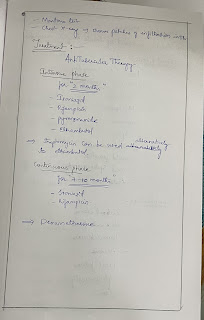 - Mantoux test
- Chest X-ray of shows patches of infiltration
Treatment :-
Anti Tubercular Therapy
Intensive phase
for "2 months"
- Isoniazid
- Rifampin
- pyrazinamide
- Ethambutol
→ can be used alternatively
to ethambutol.
Continuous phase
for 7-10 months
- Isoniazid
- Rifampin
→ Dexamethasone